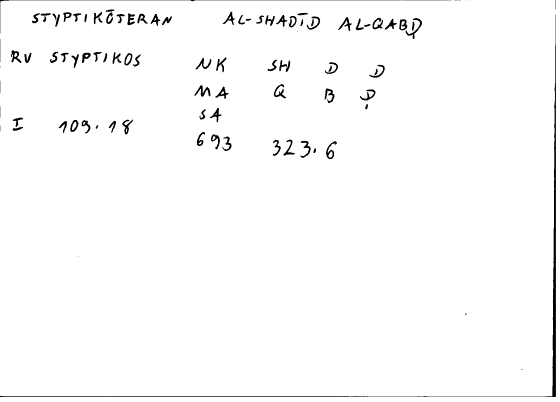 STYPTIKŌTERAN AL-SHADĪD AL-QABḌ
RV STYPTIKOS NK SH D D
MA Q B Ḍ
SA
I 109.18 693 323.6